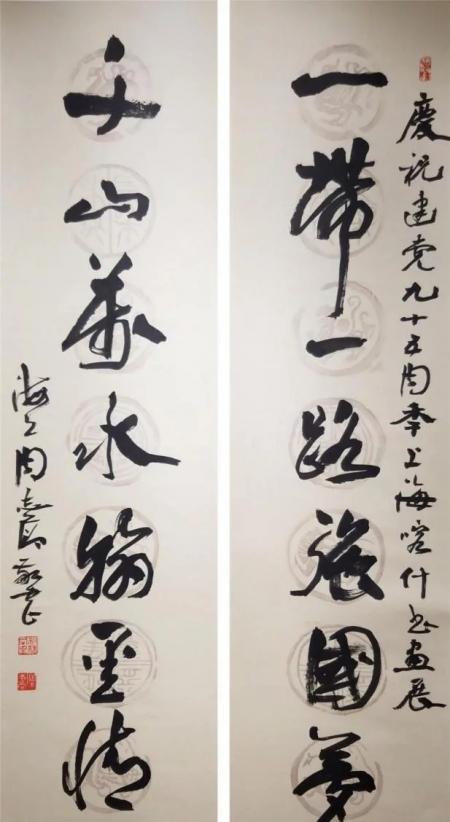 慶祝建党九十五周年上海喀什书画展
一帶一路強國夢
千山萬水翰墨情
海上周志高敬书